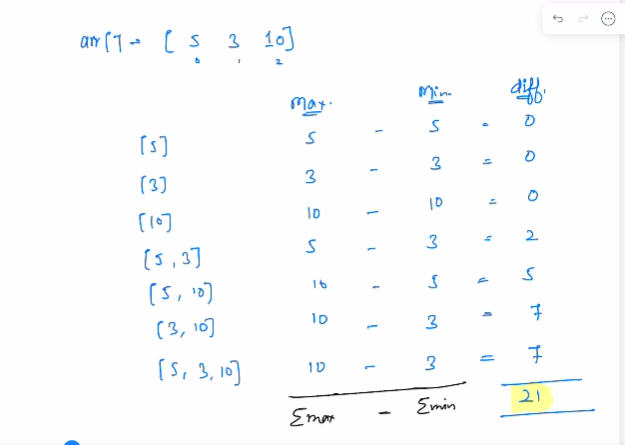 arr[] → [ 5 3 10]
0 1 2
Max. Min diff.
[5] 5 - 5 = 0
[3] 3 - 3 = 0
[10] 10 - 10 = 0
[5, 3] 5 - 3 = 2
[5, 10] 10 - 5 = 5
[3, 10] 10 - 3 = 7
[5, 3, 10] 10 - 3 = 7
Σmax - Σmin 21